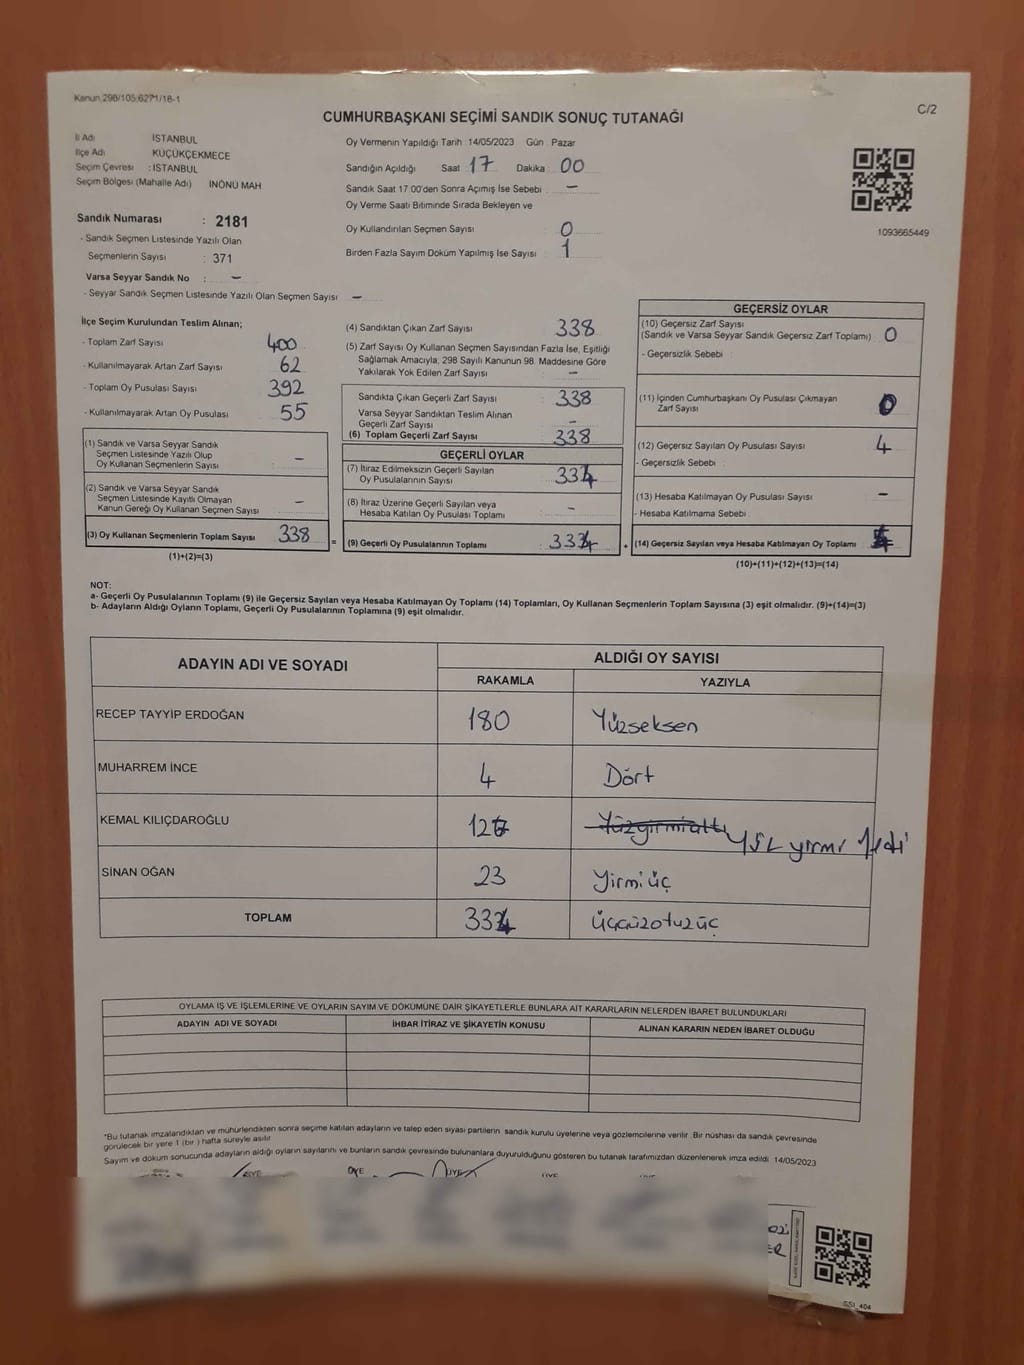 Kanun 298/105;6271/18-1
C/2
CUMHURBAŞKANI SEÇİMİ SANDIK SONUÇ TUTANAĞI
İl Adı İSTANBUL
İlçe Adı KÜÇÜKÇEKMECE
Seçim Çevresi : İSTANBUL
Seçim Bölgesi (Mahalle Adı) İNÖNÜ MAH
Sandık Numarası : 2181
- Sandık Seçmen Listesinde Yazılı Olan
Seçmenlerin Sayısı : 371
Varsa Seyyar Sandık No : –
- Seyyar Sandık Seçmen Listesinde Yazılı Olan Seçmen Sayısı –
Oy Vermenin Yapıldığı Tarih :14/05/2023 Gün : Pazar
Sandığın Açıldığı Saat 17 Dakika 00
Sandık Saat 17.00'den Sonra Açımış İse Sebebi –
Oy Verme Saati Bitiminde Sırada Bekleyen ve
Oy Kullandırılan Seçmen Sayısı 0
Birden Fazla Sayım Döküm Yapılmış İse Sayısı 1
1093665449
İlçe Seçim Kurulundan Teslim Alınan;
- Toplam Zarf Sayısı 400
- Kullanılmayarak Artan Zarf Sayısı 62
- Toplam Oy Pusulası Sayısı 392
- Kullanılmayarak Artan Oy Pusulası 55
(1) Sandık ve Varsa Seyyar Sandık
Seçmen Listesinde Yazılı Olup
Oy Kullanan Seçmenlerin Sayısı –
(2) Sandık ve Varsa Seyyar Sandık
Seçmen Listesinde Kayıtlı Olmayan
Kanun Gereği Oy Kullanan Seçmen Sayısı –
(3) Oy Kullanan Seçmenlerin Toplam Sayısı 338
(1)+(2)=(3)
=
(4) Sandıktan Çıkan Zarf Sayısı 338
(5) Zarf Sayısı Oy Kullanan Seçmen Sayısından Fazla İse, Eşitliği
Sağlamak Amacıyla, 298 Sayılı Kanunun 98. Maddesine Göre
Yakılarak Yok Edilen Zarf Sayısı –
Sandıkta Çıkan Geçerli Zarf Sayısı 338
Varsa Seyyar Sandıktan Teslim Alınan
Geçerli Zarf Sayısı –
(6) Toplam Geçerli Zarf Sayısı 338
GEÇERLİ OYLAR
(7) İtiraz Edilmeksizin Geçerli Sayılan
Oy Pusulalarının Sayısı 334
(8) İtiraz Üzerine Geçerli Sayılan veya
Hesaba Katılan Oy Pusulası Toplamı –
(9) Geçerli Oy Pusulalarının Toplamı 334
+
GEÇERSİZ OYLAR
(10) Geçersiz Zarf Sayısı
(Sandık ve Varsa Seyyar Sandık Geçersiz Zarf Toplamı) 0
- Geçersizlik Sebebi :
(11) İçinden Cumhurbaşkanı Oy Pusulası Çıkmayan
Zarf Sayısı 0
(12) Geçersiz Sayılan Oy Pusulası Sayısı 4
- Geçersizlik Sebebi :
(13) Hesaba Katılmayan Oy Pusulası Sayısı –
- Hesaba Katılmama Sebebi :
(14) Geçersiz Sayılan veya Hesaba Katılmayan Oy Toplamı 4
(10)+(11)+(12)+(13)=(14)
NOT:
a- Geçerli Oy Pusulalarının Toplamı (9) ile Geçersiz Sayılan veya Hesaba Katılmayan Oy Toplamı (14) Toplamları, Oy Kullanan Seçmenlerin Toplam Sayısına (3) eşit olmalıdır. (9)+(14)=(3)
b- Adayların Aldığı Oyların Toplamı, Geçerli Oy Pusulalarının Toplamına (9) eşit olmalıdır.
ADAYIN ADI VE SOYADI ALDIĞI OY SAYISI
RAKAMLA YAZIYLA
RECEP TAYYİP ERDOĞAN 180 Yüzseksen
MUHARREM İNCE 4 Dört
KEMAL KILIÇDAROĞLU 127 Yüzyirmialtı yüz yirmi yedi
SİNAN OĞAN 23 Yirmiüç
TOPLAM 334 üççüzotuzüç
OYLAMA İŞ VE İŞLEMLERİNE VE OYLARIN SAYIM VE DÖKÜMÜNE DAİR ŞİKAYETLERLE BUNLARA AİT KARARLARIN NELERDEN İBARET BULUNDUKLARI
ADAYIN ADI VE SOYADI İHBAR İTİRAZ VE ŞİKAYETİN KONUSU ALINAN KARARIN NEDEN İBARET OLDUĞU
*Bu tutanak imzalandıktan ve mühürlendikten sonra seçime katılan adayların ve talep eden siyasi partilerin sandık kurulu üyelerine veya gözlemcilerine verilir. Bir nüshası da sandık çevresinde
görülecek bir yere 1 (bir ) hafta süreyle asılır
Sayım ve döküm sonucunda adayların aldığı oyların sayılarını ve bunların sandık çevresinde bulunanlara duyurulduğunu gösteren bu tutanak tarafımızdan düzenlenerek imza edildi 14/05/2023
ÜYE ÜYE ÜYE